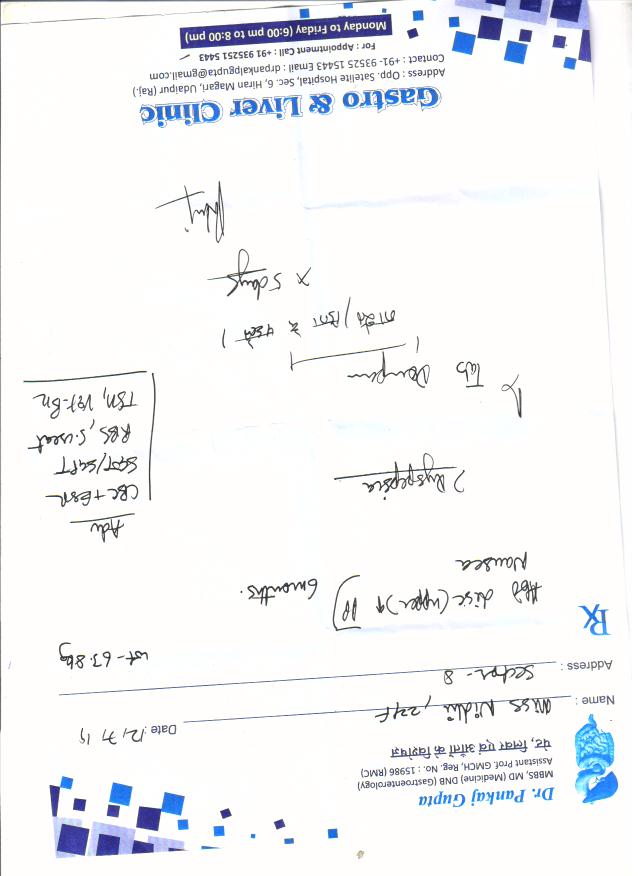 Dr. Pankaj Gupta
MBBS, MD (Medicine) DNB (Gastroenterology)
Assistant Prof. GMCH, Reg. No. : 15986 (RMC)
पेट, लिवर एवं आँतों के विशेषज्ञ
Name : Miss Nidhi, 22yF Date : 12/7/19
Address : Sector - 8
wt - 63.8kg
Rx
Abd disc (upper)
Nausea
6 months.
? Dyspepsia
Adv
CBC + ESR
SGOT/SGPT
RBS, S. creat
TSH, Vit-B12
Tab
x 5 days
Gastro & Liver Clinic
Address : Opp. Satelite Hospital, Sec. 6, Hiran Magari, Udaipur (Raj.)
Contact : +91- 93525 15443 Email : drpankajkgupta@gmail.com
For : Appointment Call : +91 935251 5443
Monday to Friday (6:00 pm to 8:00 pm)